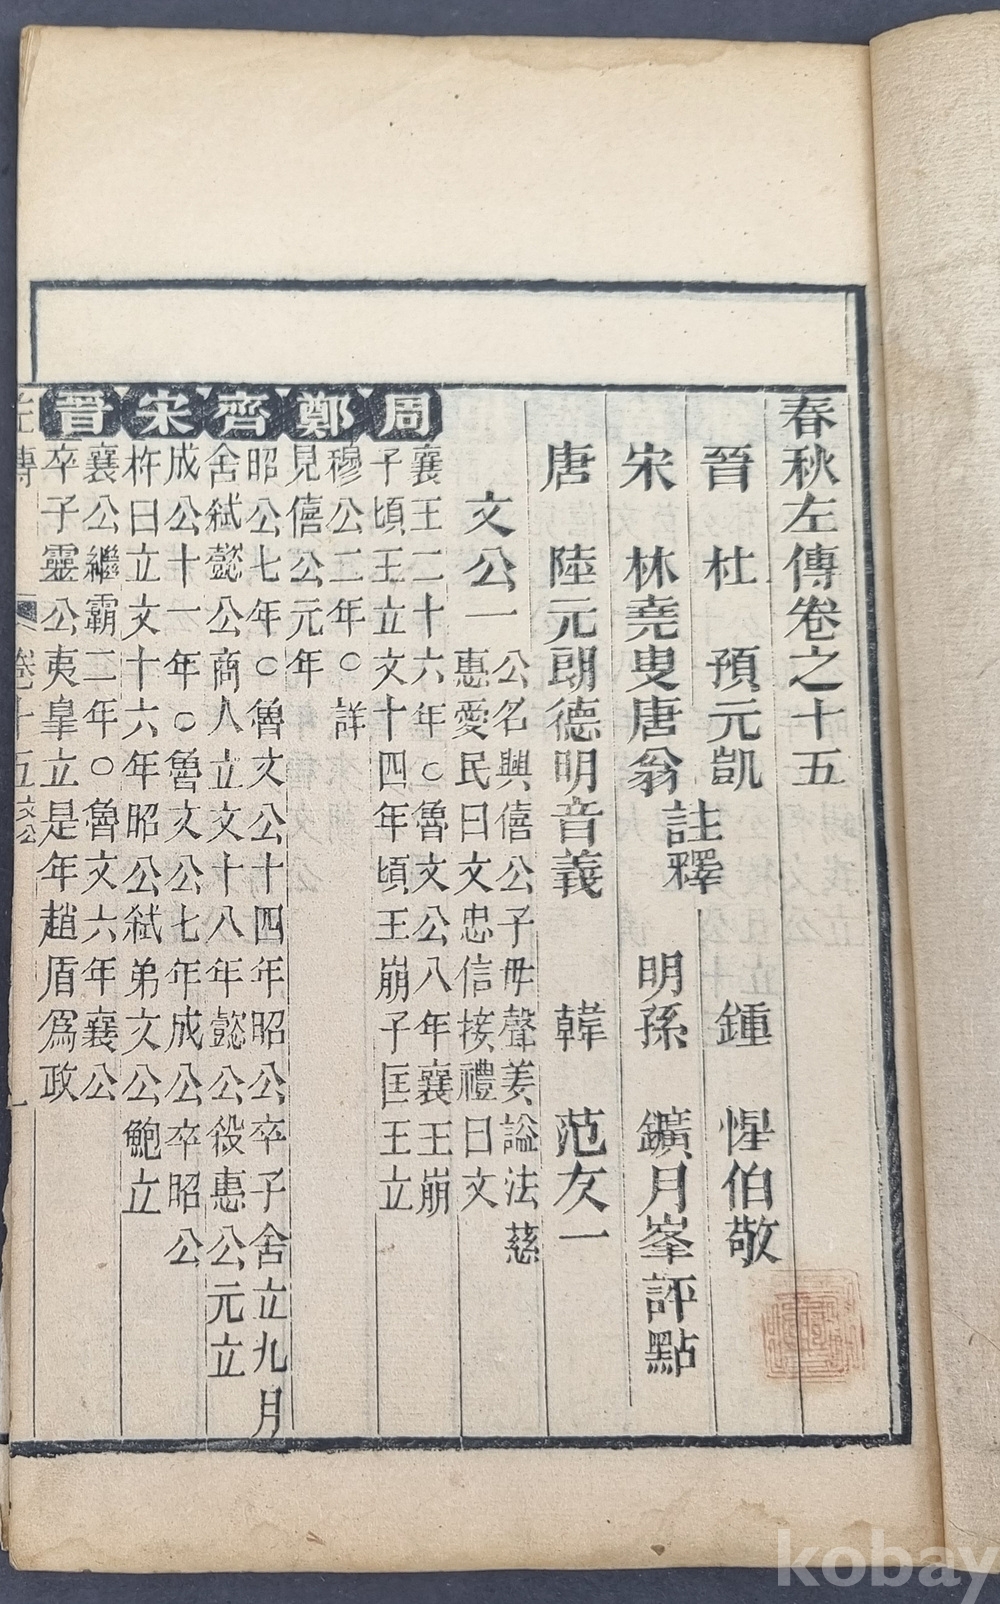 春秋左傳卷之十五
晉 杜 預元凱
宋 林堯叟唐翁
註釋
唐 陸元朗德明音義
鍾 惺伯敬
明孫 鑛月峯評點
韓 范友一
文公一
公名興僖公子母聲姜謚法慈
惠愛民曰文忠信接禮曰文
周
襄王二十六年○魯文公八年襄王崩
子頃王立文十四年頃王崩子匡王立
鄭
穆公二年○詳
見僖公元年
齊
昭公七年○魯文公十四年昭公卒子舍立九月
舍弑懿公商人立文十八年懿公役惠公元立
宋
成公十一年○魯文公七年成公卒昭公
杵臼立文十六年昭公弑弟文公鮑立
晉
襄公繼霸二年○魯文六年襄公
卒子靈公夷臯立是年趙盾爲政
左傳 卷十五 文公 一
kobay